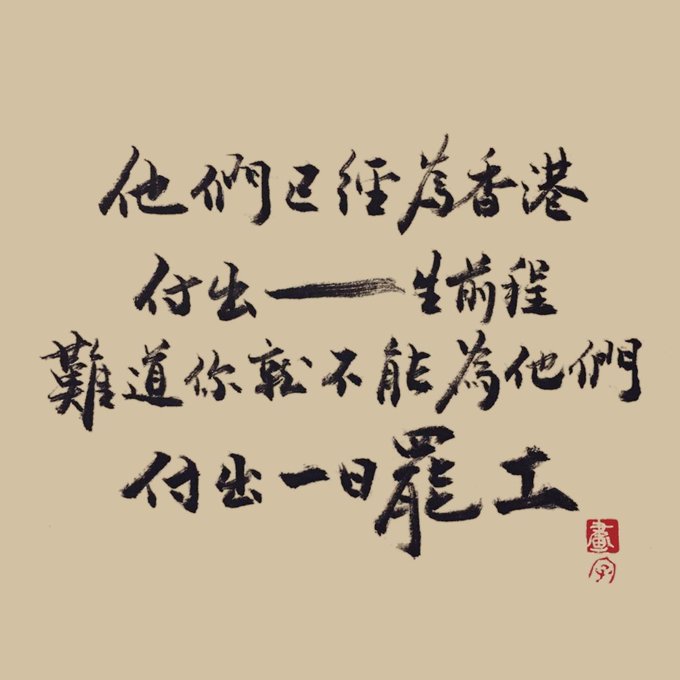 他們已經為香港
付出一生前程
難道你就不能為他們
付出一日罷工
畫字